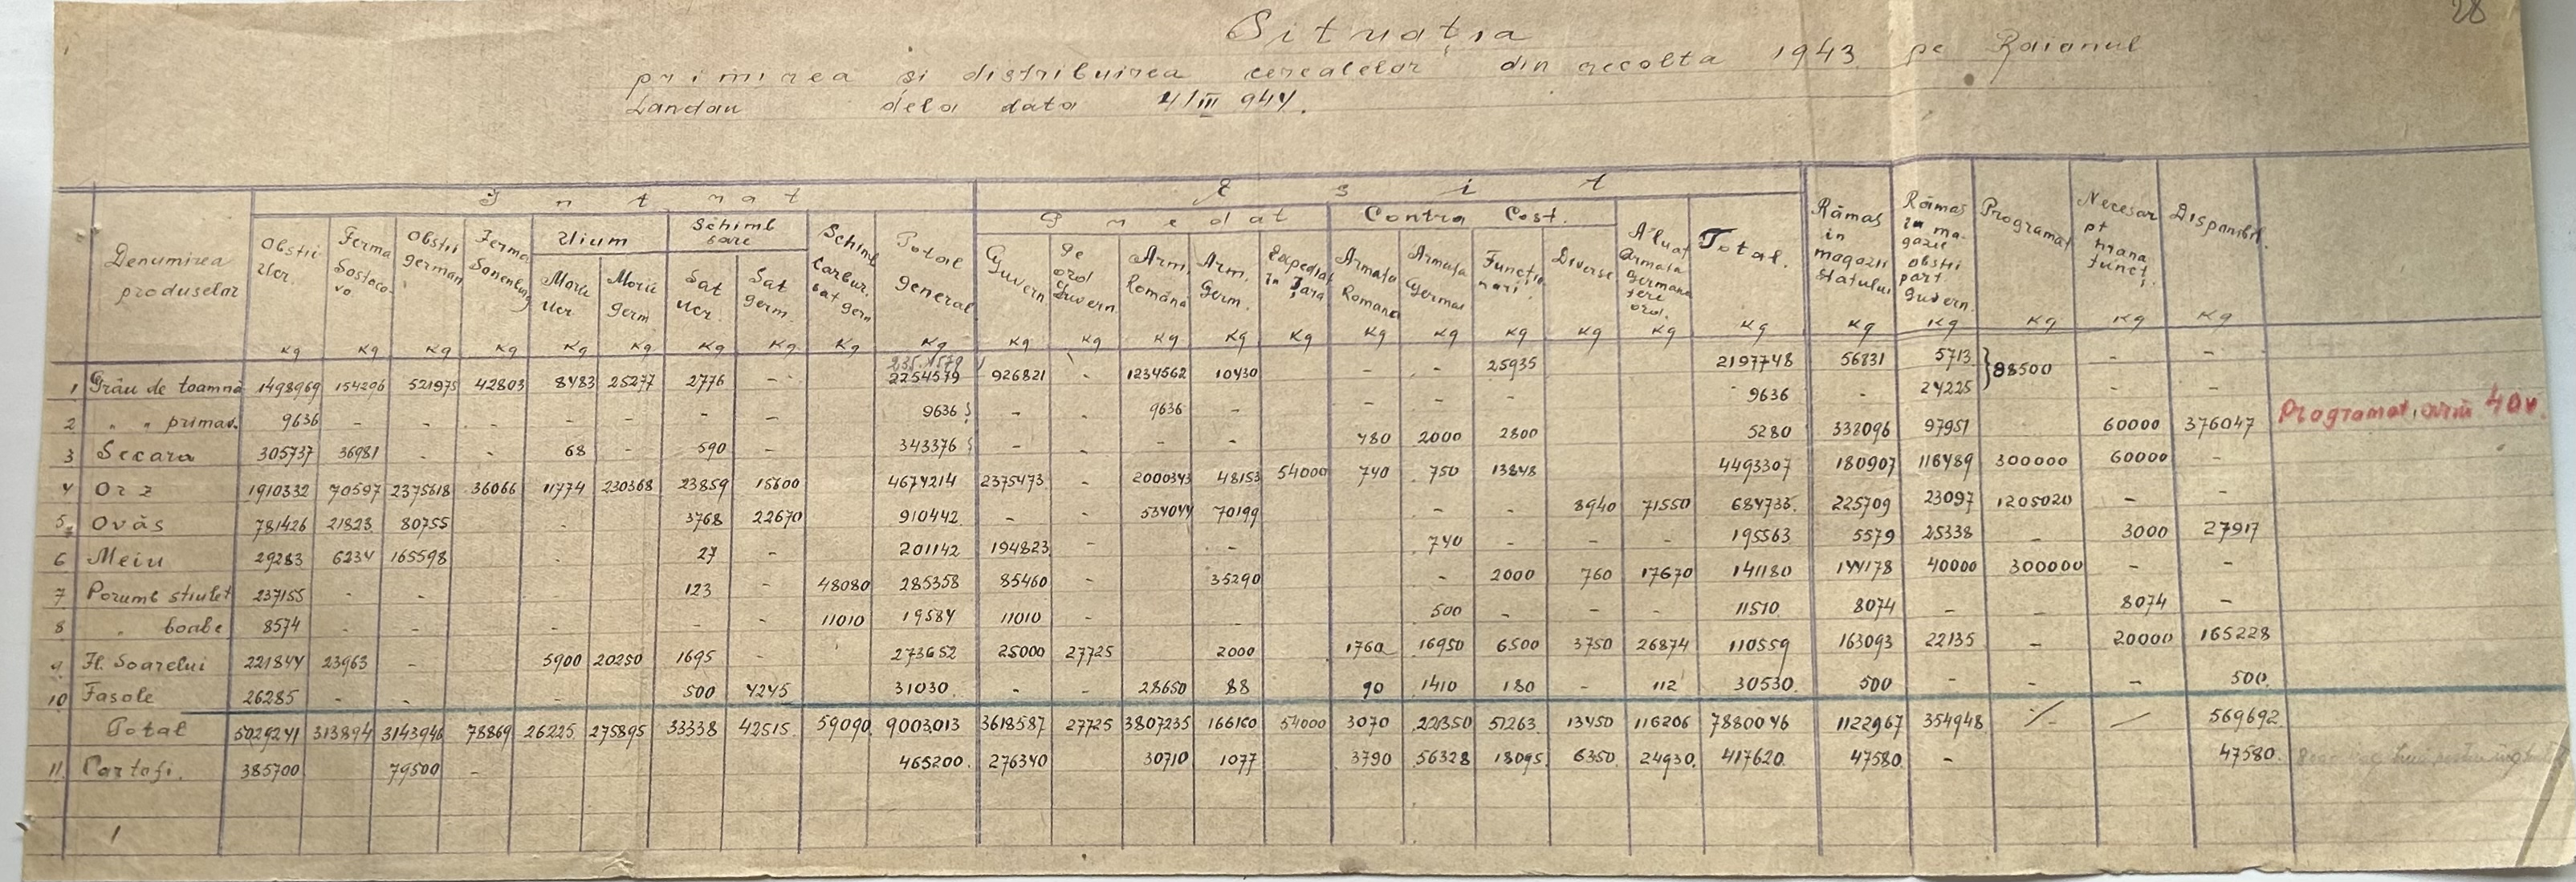 28
Situația
primirea și distribuirea cerealelor din recolta 1943 pe Raionul
Landau dela data 4/III 944.
Intrat Esit
Predat Contra Cost.
Denumirea produselor
Obștii Ucr. Kg
Ferma Sostoco-vo Kg
Obștii german Kg
Ferma Sonenburg Kg
Uium
Morii Ucr. Kg
Morii Germ. Kg
Schimb sare
Sat Ucr. Kg
Sat germ. Kg
Schimb Carbur. sat germ Kg
Total general Kg
Guvern Kg
Pe ord Guvern Kg
Arm. Română Kg
Arm. Germ. Kg
Expediat în Țara Kg
Armata Romana Kg
Armata German Kg
Funcționari Kg
Diverse Kg
A luat Armata Germana fere ord. Kg
Total. Kg
Rămas in magazii Statului Kg
Rămas in magazii obștii part Guvern. Kg
Programat Kg
Necesar pt hrana funcț. Kg
Disponibil. Kg
235.1579
1 Grâu de toamnă 1498969 154296 521975 42803 8483 25277 2776 - 2254579 926821 - 1234562 10430 - - 25935 2197748 56831 5713 } 88500 - -
2 " " primav. 9636 - - - - - - - 9636 - - 9636 - - - - 9636 - 24225 - -
3 Secara 305737 36981 - - 68 - 590 - 343376 - - - - 480 2000 2800 5280 338096 97951 60000 376047 Programat,
4 Orz 1910332 70597 2375618 36066 11774 230368 23859 15600 4674214 2375473 - 2000343 48153 54000 740 750 13848 4493307 180907 116489 300000 60000 -
5 Ovăs 781426 21823 80755 - - 3768 22670 910442 - - 534044 70199 - - 8940 71550 684733 225709 23097 1205020 - -
6 Meiu 29283 6234 165598 27 - 201142 194823 - - 740 - - - 195563 5579 25338 - 3000 27917
7 Porumb stiulet 237155 - - 123 - 48080 285358 85460 - 35290 - 2000 760 17670 141180 144178 40000 300000 - -
8 " boabe 8574 - - - - - - 11010 19584 11010 - - 500 - - - 11510 8074 - - 8074 -
9 Fl. Soarelui 221844 23963 - 5900 20250 1695 - 273652 25000 27725 2000 1760 16950 6500 3750 26874 110559 163093 22135 - 20000 165228
10 Fasole 26285 - - - - 500 4245 31030 - - 28650 88 90 1410 180 - 112 30530 500 - - - 500
Total 5029241 313894 3143946 78869 26225 275895 33338 42515 59090 9003013 3618587 27725 3807235 166160 54000 3070 22350 51263 13450 116206 7880046 1122967 354948 569692
11 Cartofi. 385700 79500 - 465200 276340 30710 1077 3790 56328 18095 6350 24930 417620 47580 - 47580